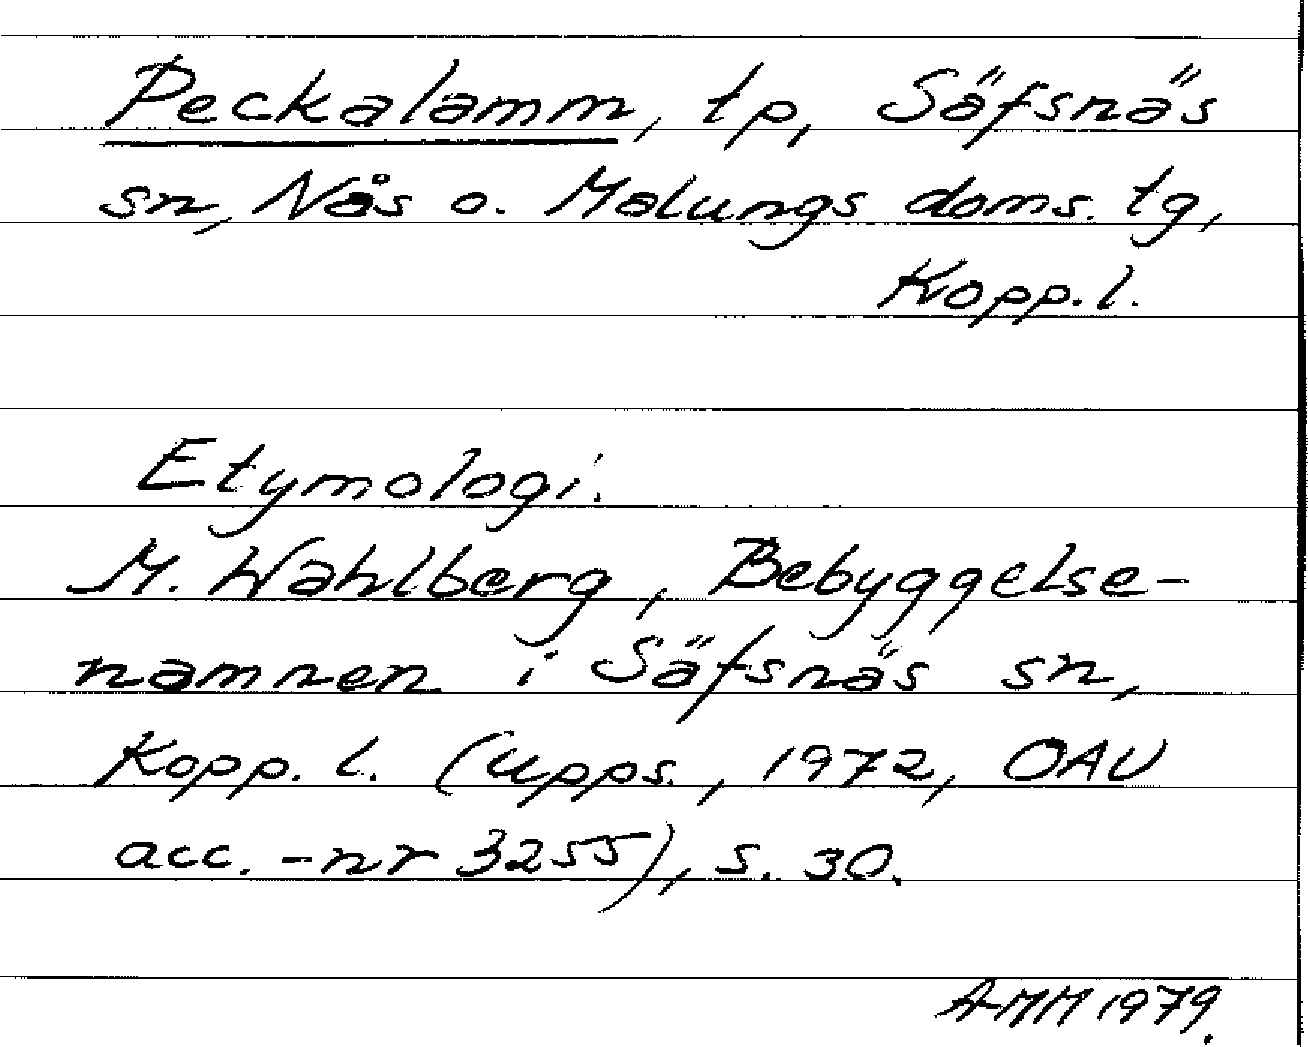 Peckalamm, tp, Säfsnäs
sn, Nås o. Malungs doms. tg,
Kopp. l.
Etymologi.
M. Wahlberg, Bebyggelse-
namnen i Säfsnäs sn,
Kopp. l. (Upps., 1972, OAU
acc.-nr 3255), s. 30.
AMM 1979.